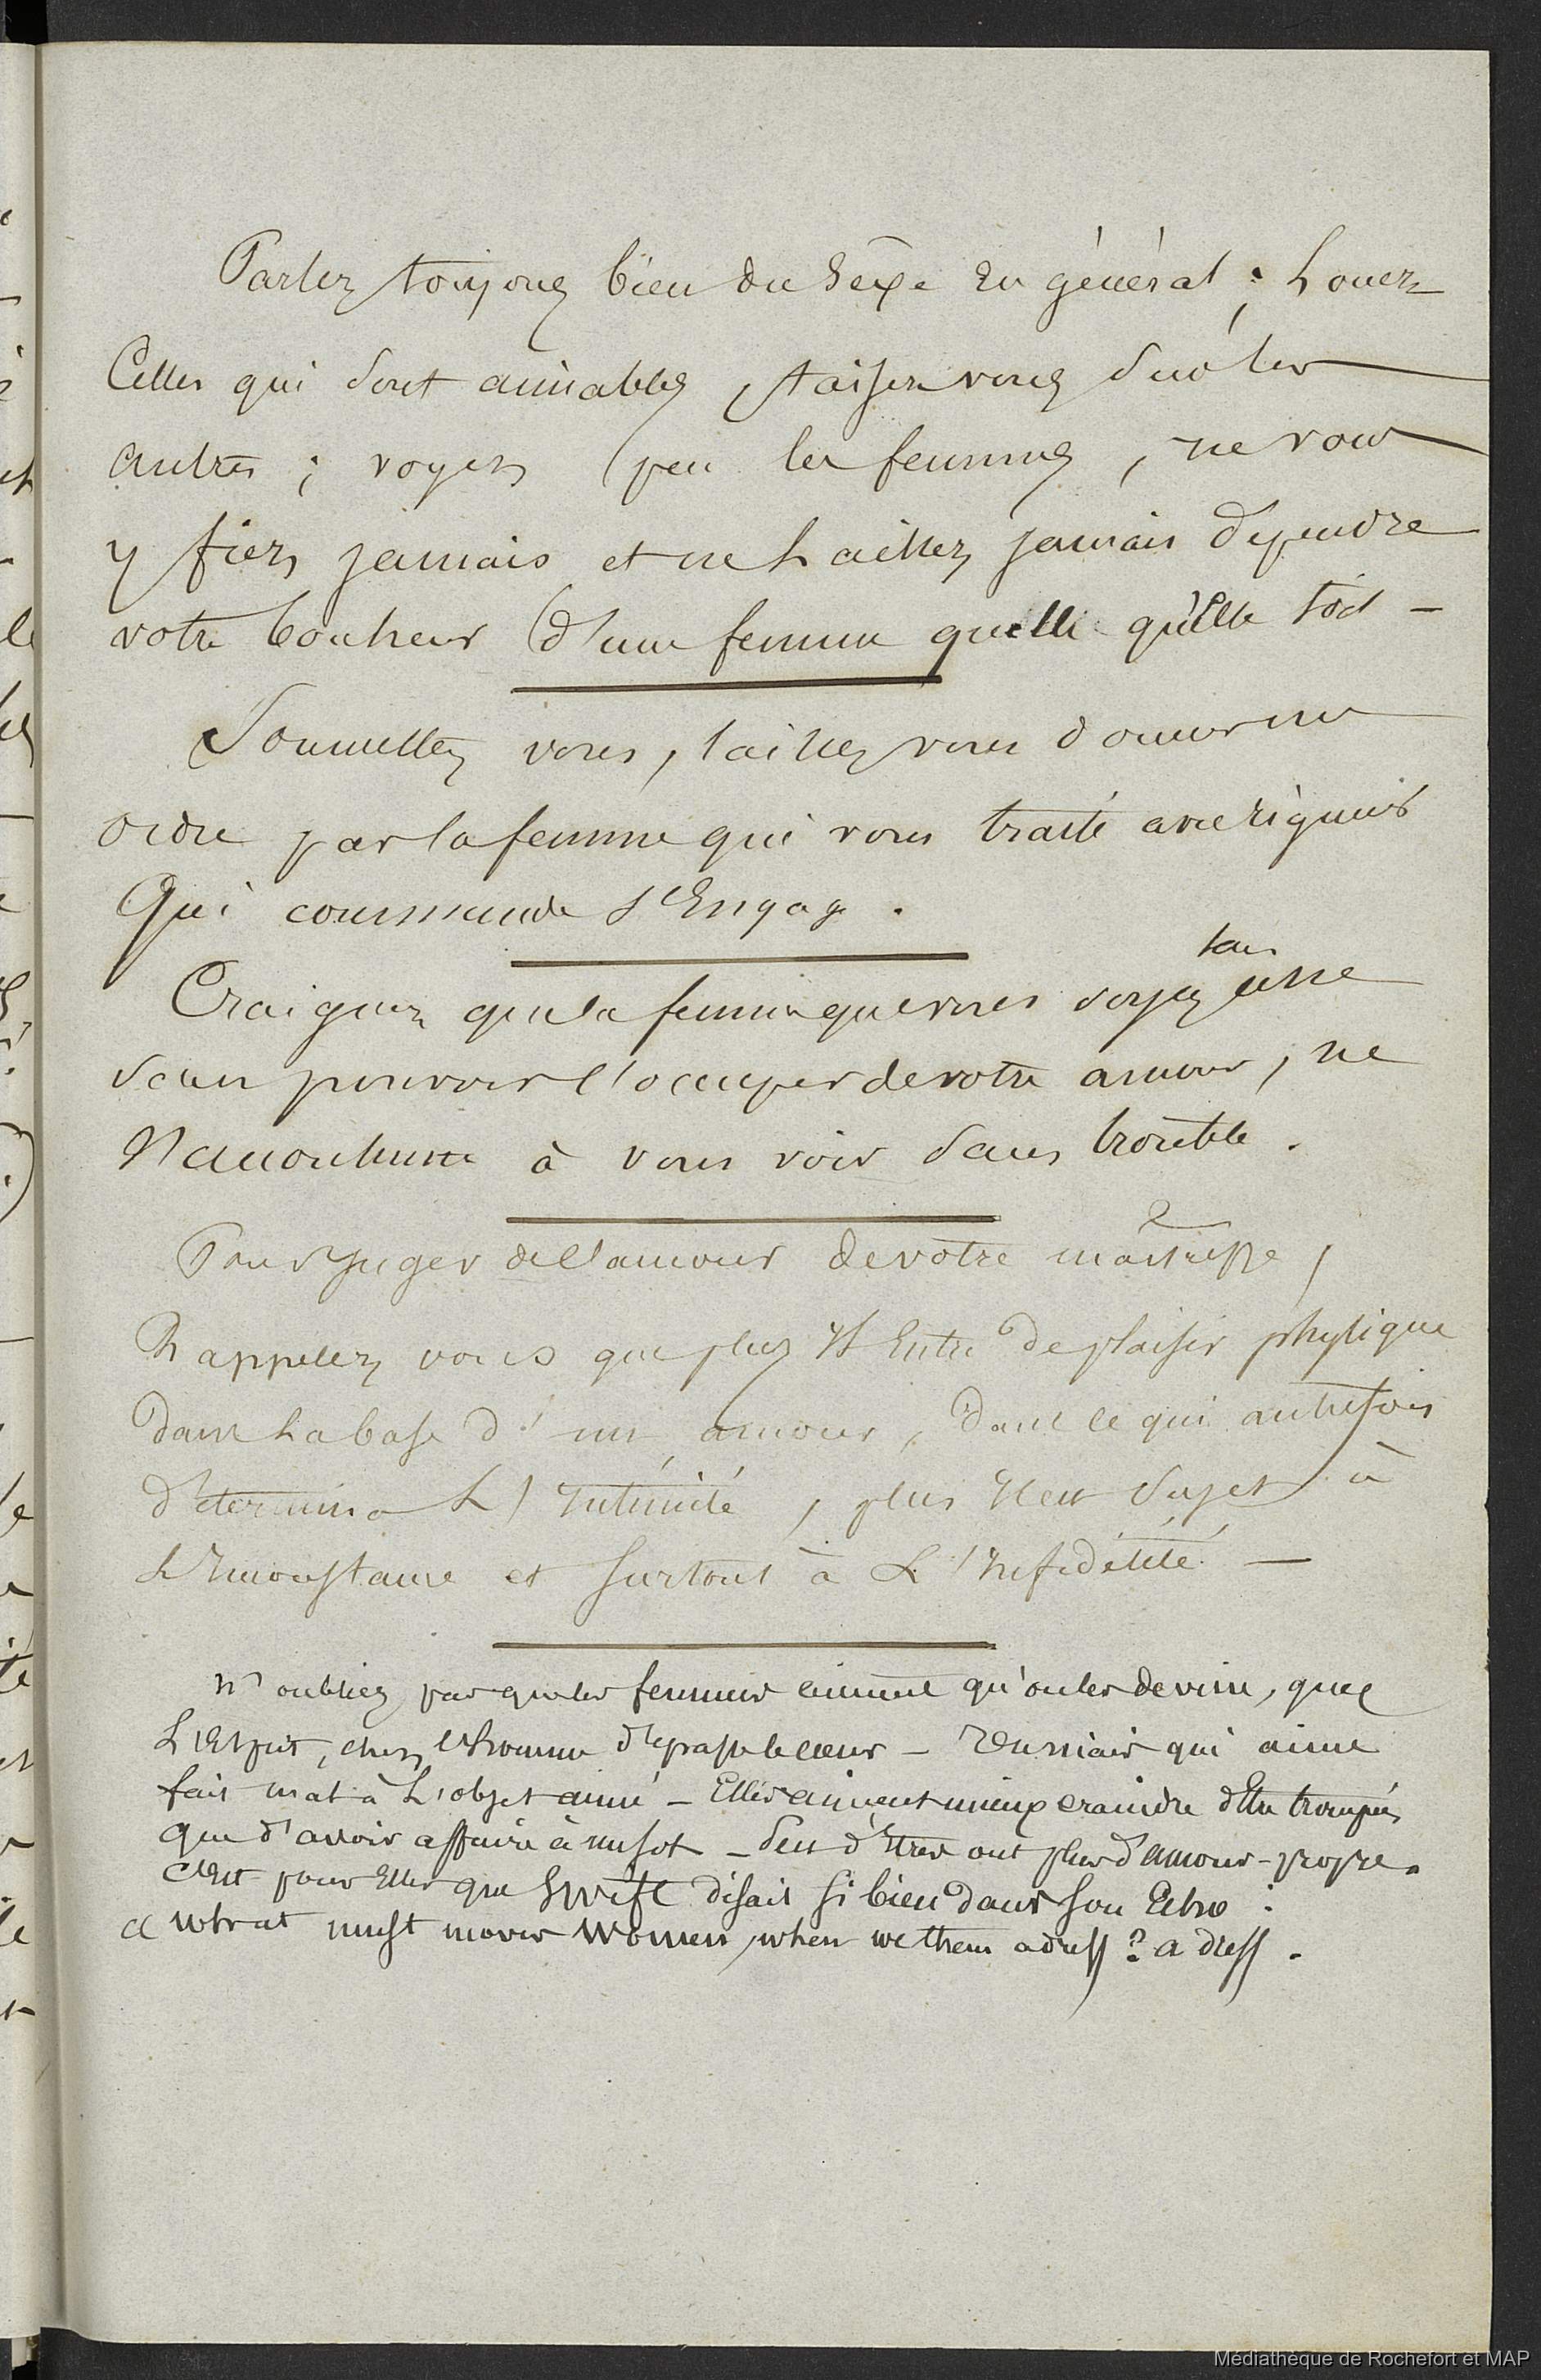 Parlez toujours bien du sexe en général ; Louez
Celles qui sont aimables, taisez vous sur les
autres ; voyez peu les femmes, ne vous
y fiez jamais et ne Laissez jamais dépendre
votre bonheur d'une femme quelle qu'elle soit —
Soumettez vous, laissez vous donner un
ordre par la femme qui vous traite avec rigueur
Qui commande s'Engage.
sans
Craignez que la femme que vous voyez
sans pouvoir l'occuper de votre amour, ne
s'accoutume à vous voir sans trouble.
Pour Juger de l'amour de votre maîtresse,
Rappelez vous que plus il Entre de plaisir physique
dans La base d'un amour, dans ce qui autrefois
détermina L'Intimité, plus Il est sujet à
L'Inconstance et surtout à L'Infidélité —
N'oubliez pas que les femmes aiment qu'on les devine, que
L'Esprit, chez l'homme dépasse le cœur — Un niais qui aime
fait mal à L'objet aimé — Elles aiment mieux craindre d'Etre trompées
que d'avoir affaire à un sot — Peu d'Etres ont plus d'amour-propre.
C'est pour Elles que Swift disait si bien dans son Echo :
« What must moves women, when we them adress ? a dress.